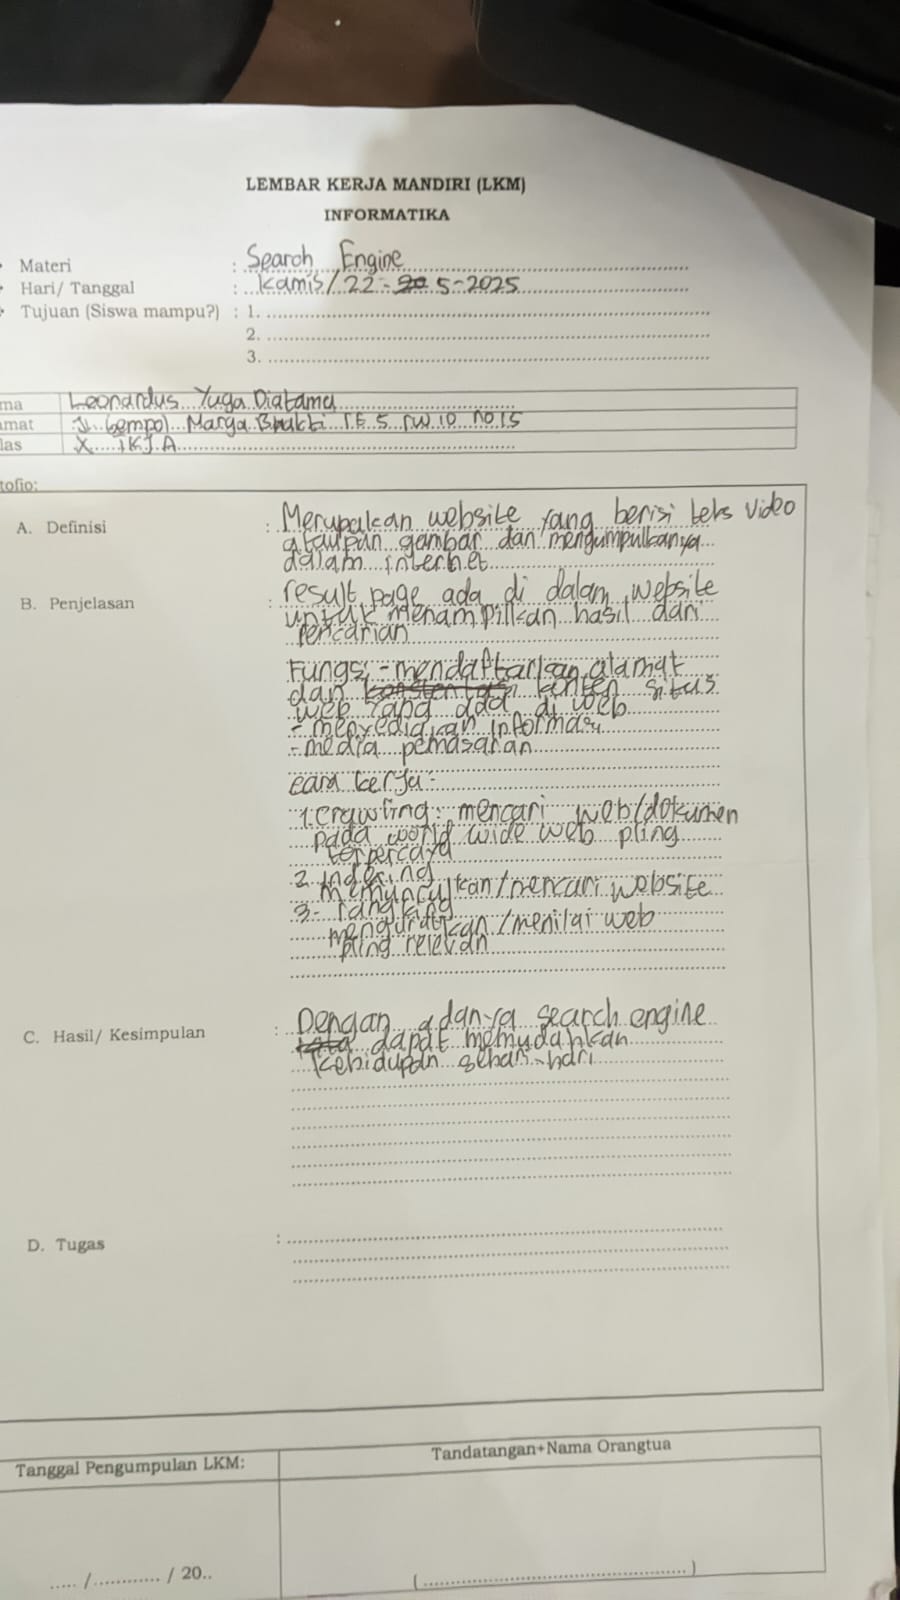 LEMBAR KERJA MANDIRI (LKM)
INFORMATIKA
Materi : Search Engine
Hari/ Tanggal : Kamis/22-5-2025
Tujuan (Siswa mampu?) : 1.
2.
3.
ma Leonardus Yuga Diatama
mat Jl. Gempol Marga Bhakti rt 5 rw 10 no 15
las X
tofio:
A. Definisi : Merupakan website yang berisi teks video
ataupun gambar dan mengumpulkanya
dalam internet
B. Penjelasan : result page ada di dalam website
untuk menampilkan hasil dari
Pencarian
Fungsi - mendaftarkan alamat
dan konten situs
web yang ada di web
- menyediakan informasi
- media pemasaran
cara kerja:
1. crawling: mencari web/dokumen
pada world wide web pling
terpercaya
2. indexing
memunculkan/mencari website
3- rangking
mengurutkan/menilai web
pling relevan
C. Hasil/ Kesimpulan : Dengan adanya search engine
dapat memudahkan
kehidupan sehari-hari
D. Tugas :
Tanggal Pengumpulan LKM: Tandatangan+Nama Orangtua
...../............/ 20.. (..................................................)